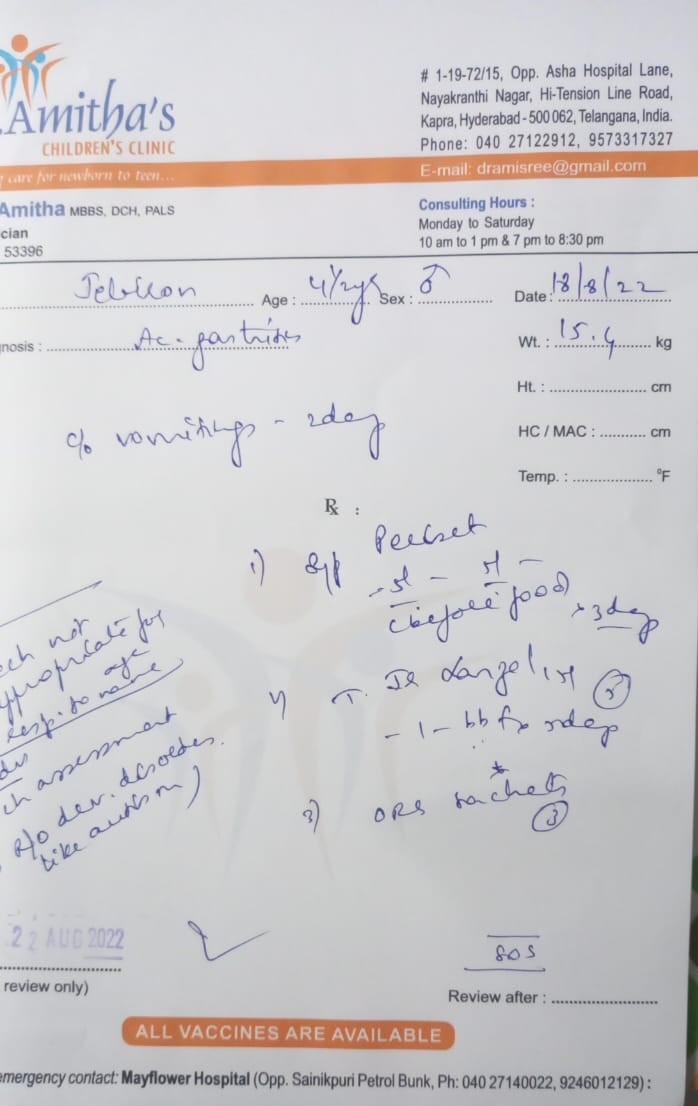 Amitha's
CHILDREN'S CLINIC
care for newborn to teen...
# 1-19-72/15, Opp. Asha Hospital Lane,
Nayakranthi Nagar, Hi-Tension Line Road,
Kapra, Hyderabad - 500 062, Telangana, India.
Phone: 040 27122912, 9573317327
E-mail: dramisree@gmail.com
Amitha MBBS, DCH, PALS
cian
53396
Consulting Hours :
Monday to Saturday
10 am to 1 pm & 7 pm to 8:30 pm
Age : 4 1/2 yrs Sex : ♂ Date: 18/8/22
nosis : Ac. gastritis
Wt. : 15.4 kg
Ht. : cm
HC / MAC : cm
Temp. : °F
c/o vomitings - 2day
Rx :
1) Syp
before food x 3day
2) T.
- 1 - bb
3) ORS sachets
(3)
ech not
appropriate for
age
resp. to name
ch assessment
R/o dev. disorder
like autism)
22 AUG 2022
review only)
SOS
Review after :
ALL VACCINES ARE AVAILABLE
emergency contact: Mayflower Hospital (Opp. Sainikpuri Petrol Bunk, Ph: 040 27140022, 9246012129) :